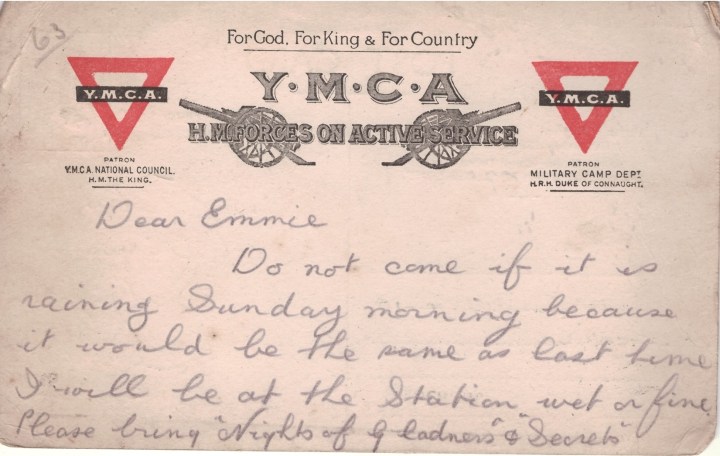 63
For God, For King & For Country
Y·M·C·A
H.M. FORCES ON ACTIVE SERVICE
Y.M.C.A.
PATRON
Y.M.C.A. NATIONAL COUNCIL.
H.M. THE KING.
Y.M.C.A.
PATRON
MILITARY CAMP DEPT.
H.R.H. DUKE OF CONNAUGHT.
Dear Emmie
Do not come if it is
raining Sunday morning because
it would be the same as last time
I will be at the Station wet or fine.
Please bring "Nights of Gladness" & "Secrets"